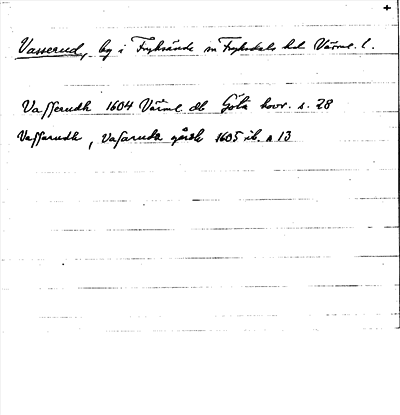 +
Vasserud, by i Fryksände sn Fryksdals hd Värml. l.
Vasserudh 1604 Värml. db Göta hovr. s. 28
Vasserudh, Vasaruda gårdh 1605 ib. s 13